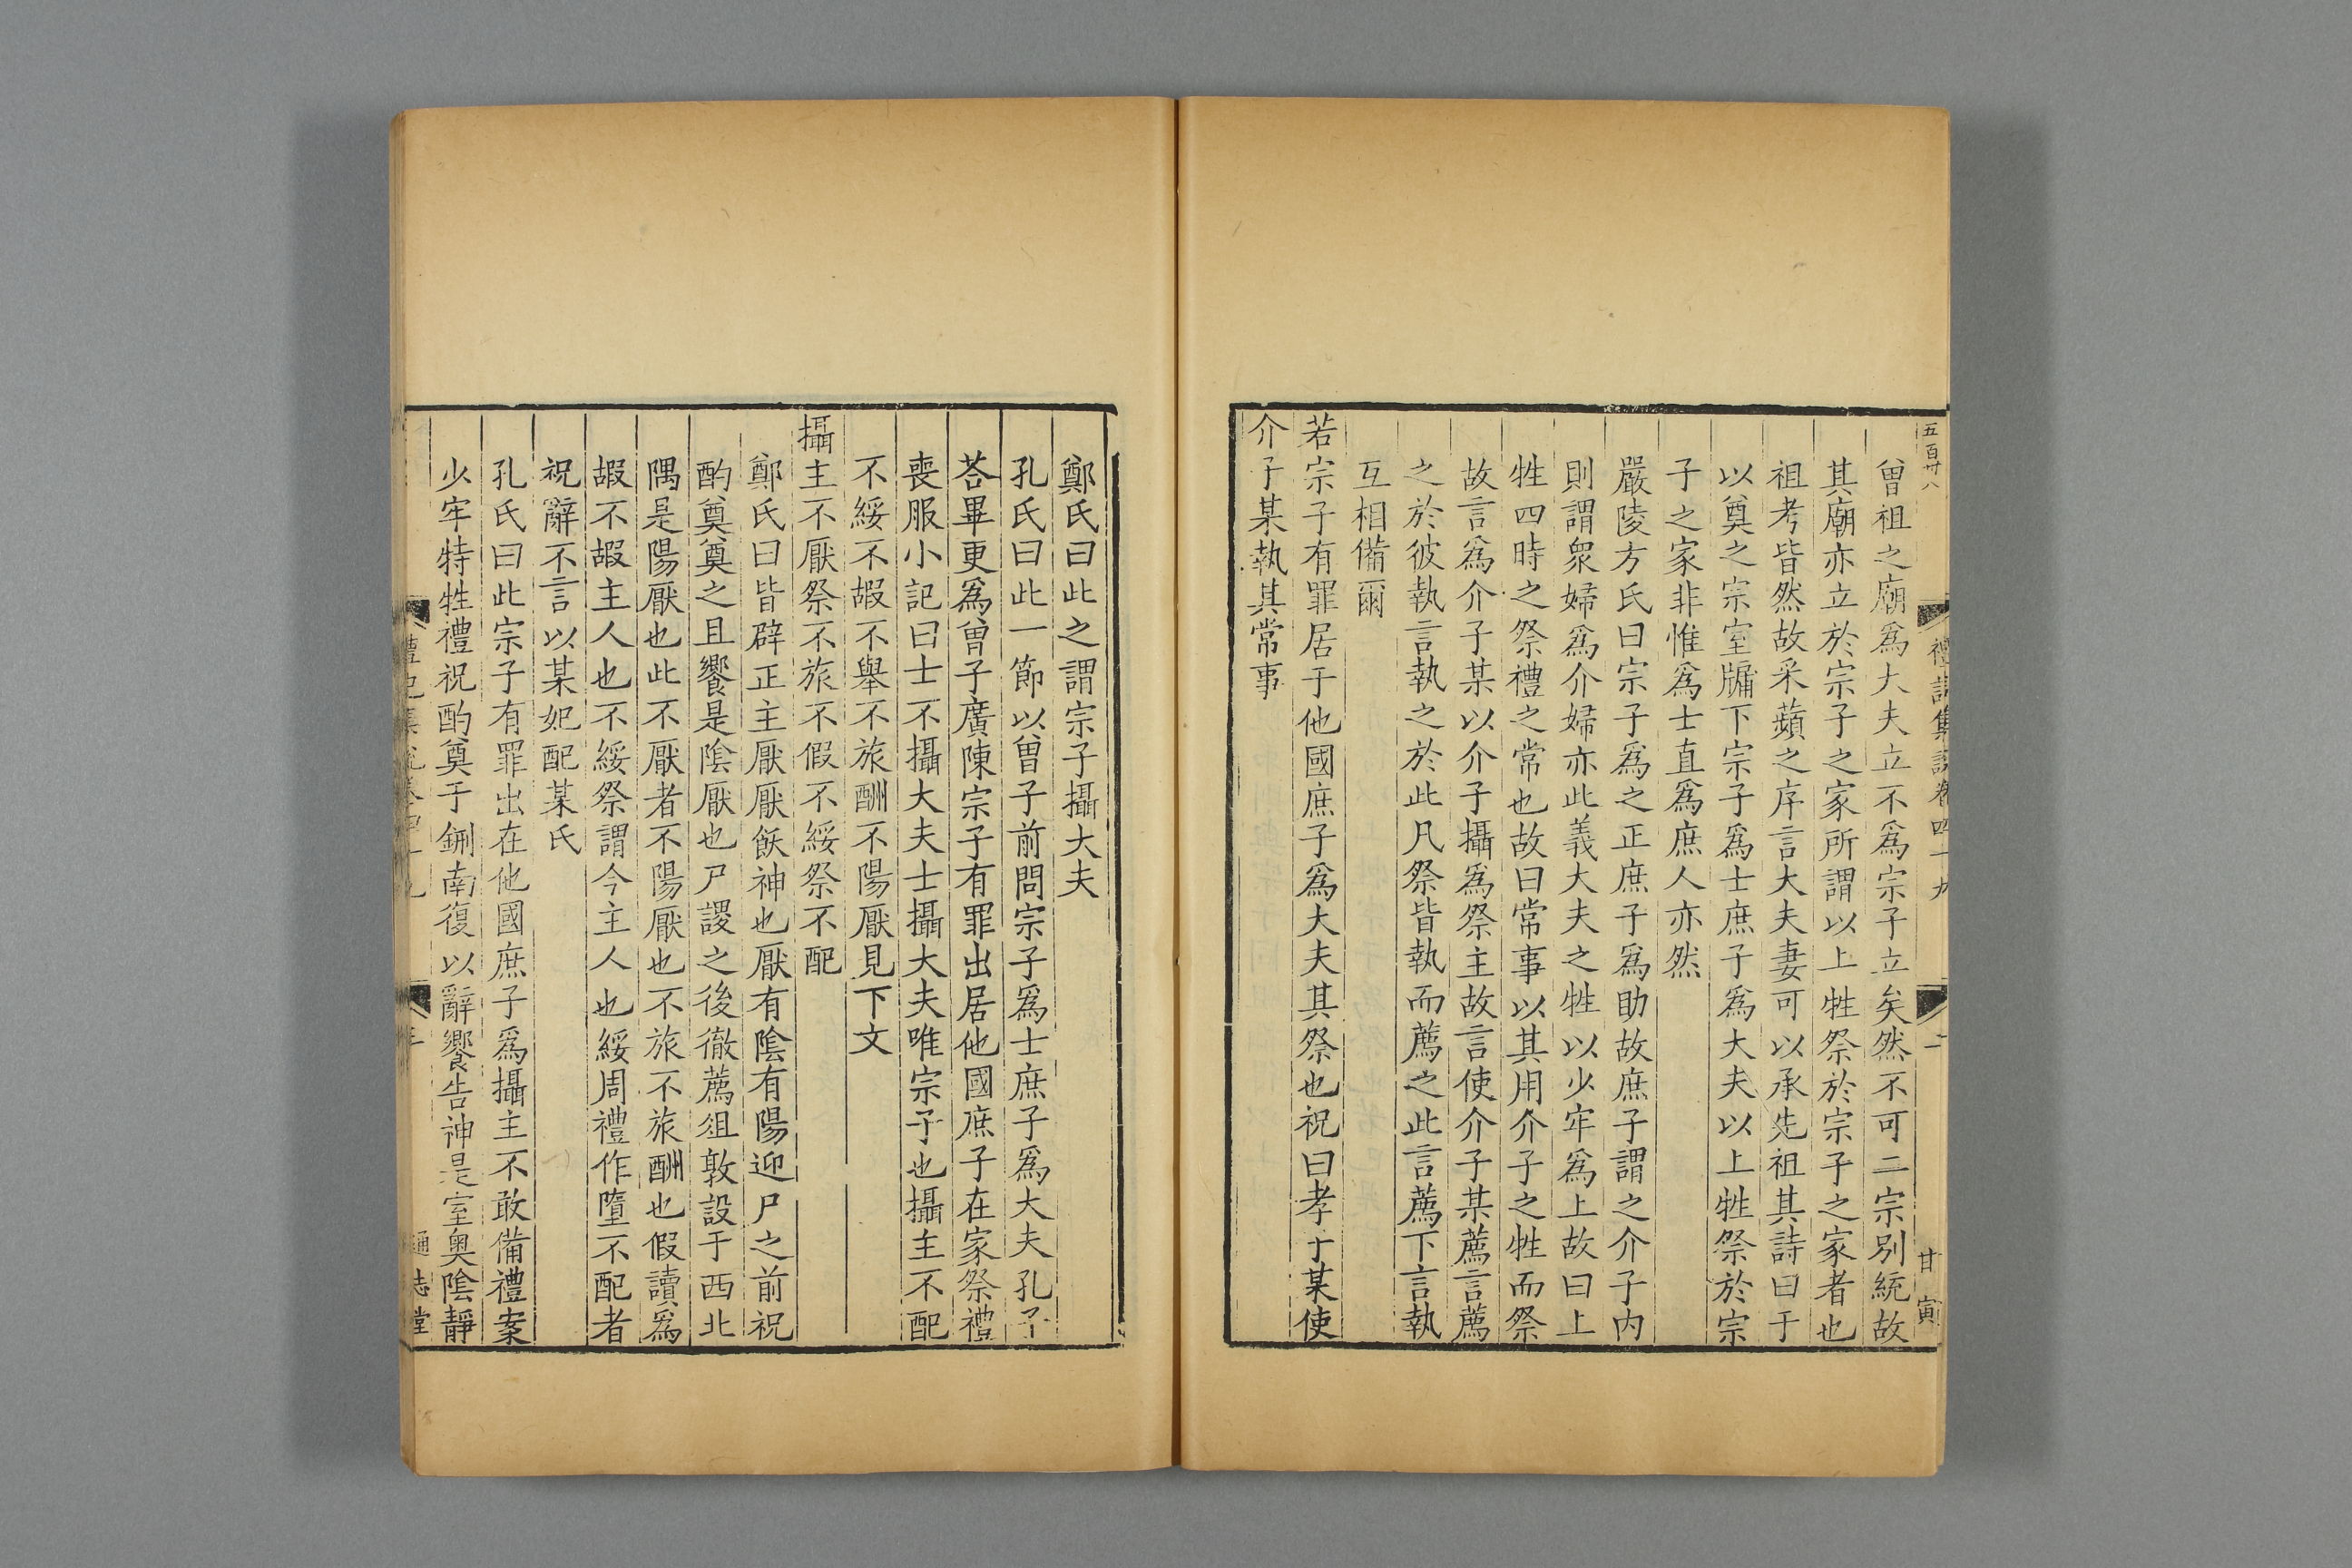 五百卅八
禮記集說卷四十九
二
甘寅
曾祖之廟爲大夫立不爲宗子立矣然不可二宗別統故
其廟亦立於宗子之家所謂以上牲祭於宗子之家者也
祖考皆然故采蘋之序言大夫妻可以承先祖其詩曰于
以奠之宗室牖下宗子爲士庶子爲大夫以上牲祭於宗
子之家非惟爲士直爲庶人亦然
嚴陵方氏曰宗子爲之正庶子爲助故庶子謂之介子内
則謂衆婦爲介婦亦此義大夫之牲以少牢爲上故曰上
牲四時之祭禮之常也故曰常事以其用介子之牲而祭
故言爲介子某以介子攝爲祭主故言使介子某薦言薦
之於彼執言執之於此凡祭皆執而薦之此言薦下言執
互相備爾
若宗子有罪居于他國庶子爲大夫其祭也祝曰孝子某使
介子某執其常事
鄭氏曰此之謂宗子攝大夫
孔氏曰此一節以曾子前問宗子爲士庶子爲大夫孔子
荅畢更爲曾子廣陳宗子有罪出居他國庶子在家祭禮
喪服小記曰士不攝大夫士攝大夫唯宗子也攝主不配
不綏不嘏不舉不旅酬不陽厭見下文
攝主不厭祭不旅不假不綏祭不配
鄭氏曰皆辟正主厭厭飫神也厭有陰有陽迎尸之前祝
酌奠奠之且饗是陰厭也尸謖之後徹薦俎敦設于西北
隅是陽厭也此不厭者不陽厭也不旅不旅酬也假讀爲
嘏不嘏主人也不綏祭謂今主人也綏周禮作墮不配者
祝辭不言以某妃配某氏
孔氏曰此宗子有罪出在他國庶子爲攝主不敢備禮案
少牢特牲禮祝酌奠于鉶南復以辭饗告神是室奥陰靜
禮記集說卷四十九
三
通志堂